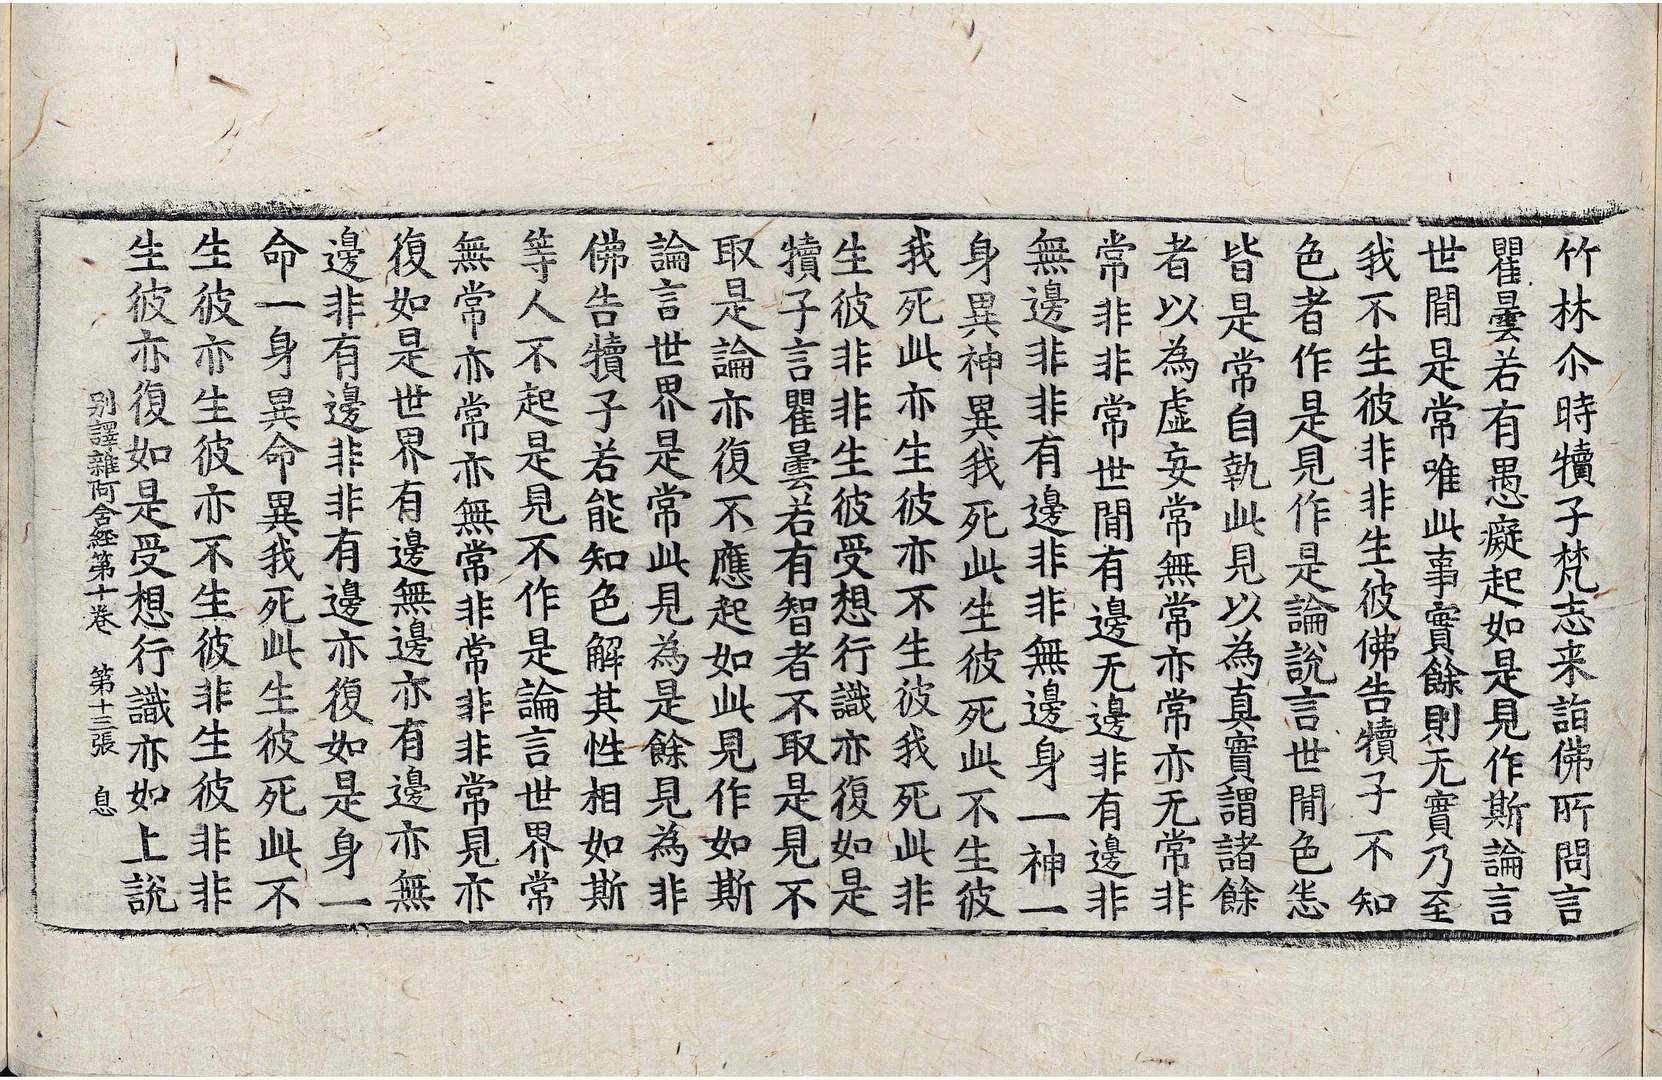 竹林尒時犢子梵志来詣佛所問言
瞿曇若有愚癡起如是見作斯論言
世間是常唯此事實餘則无實乃至
我不生彼非非生彼佛告犢子不知
色者作是見作是論說言世間色悉
皆是常自執此見以為真實謂諸餘
者以為虛妄常無常亦常亦无常非
常非非常世間有邊无邊非有邊非
無邊非非有邊非非無邊身一神一
身異神異我死此生彼死此不生彼
我死此亦生彼亦不生彼我死此非
生彼非非生彼受想行識亦復如是
犢子言瞿曇若有智者不取是見不
取是論亦復不應起如此見作如斯
論言世界是常此見為是餘見為非
佛告犢子若能知色解其性相如斯
等人不起是見不作是論言世界常
無常亦常亦無常非常非非常見亦
復如是世界有邊無邊亦有邊亦無
邊非有邊非非有邊亦復如是身一
命一身異命異我死此生彼死此不
生彼亦生彼亦不生彼非生彼非非
生彼亦復如是受想行識亦如上說
别譯雜阿含經第十卷 第十三張 息